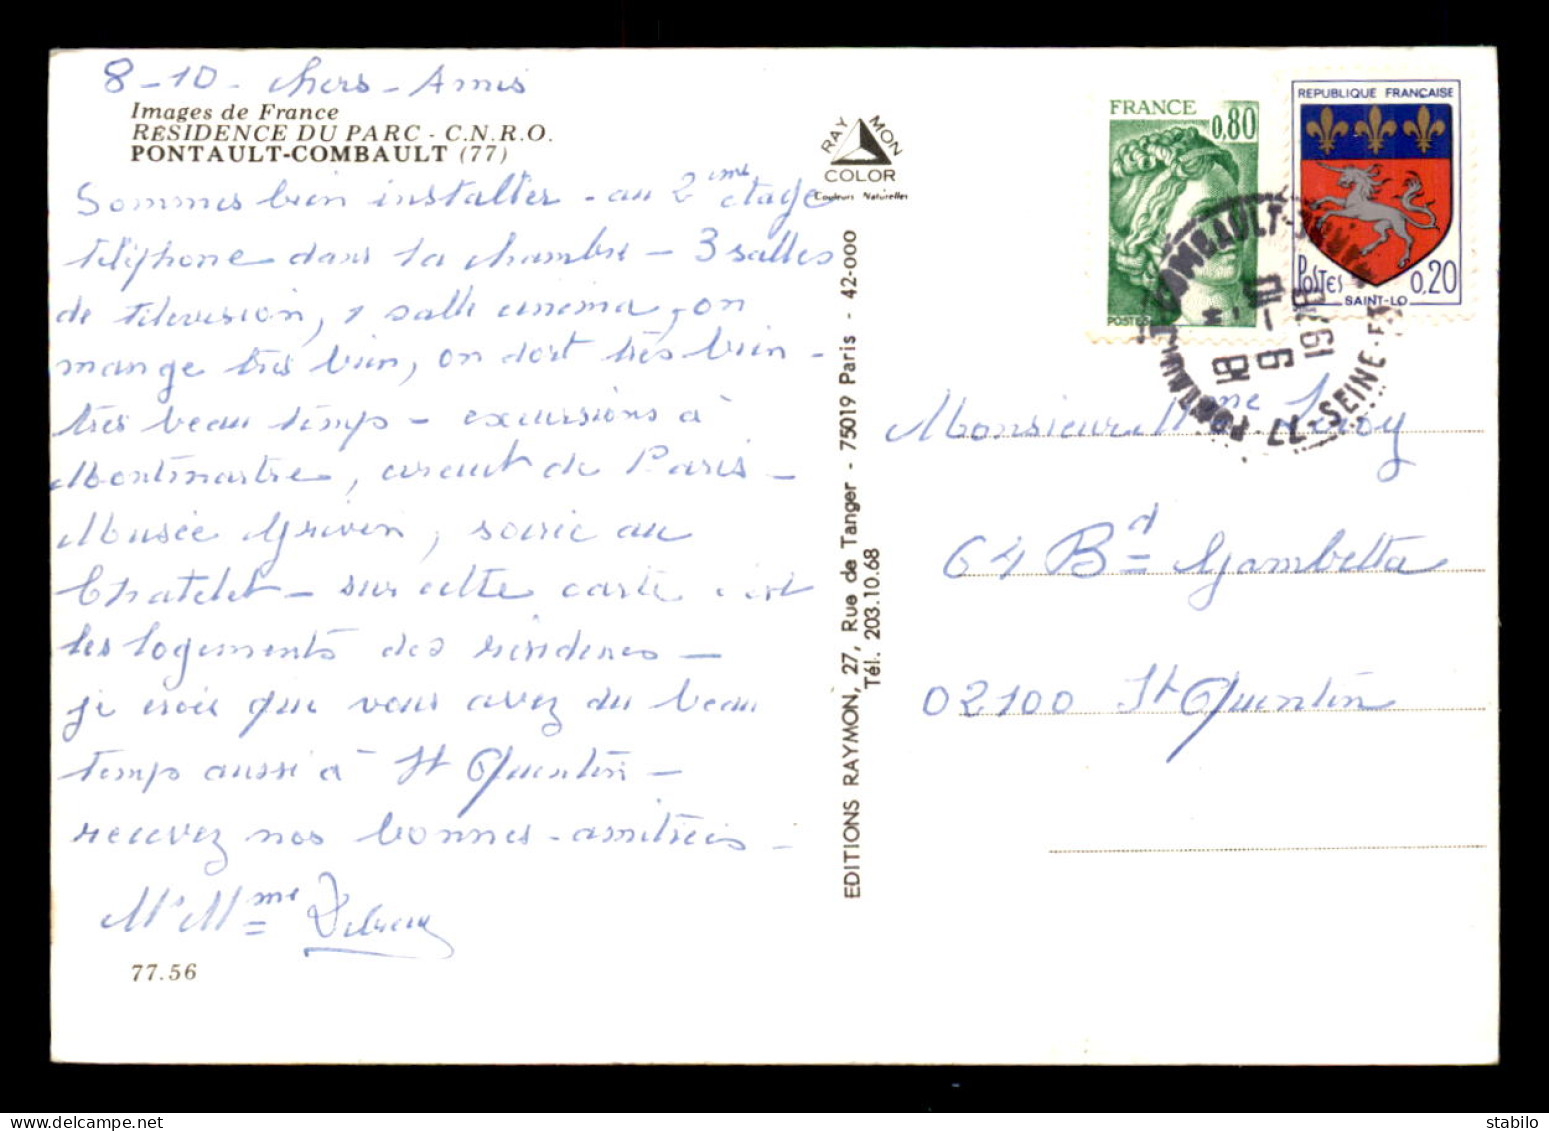 8-10- chers-Amis
Images de France
RÉSIDENCE DU PARC - C.N.R.O.
PONTAULT-COMBAULT (77)
Sommes bien installer - au 2ème étage
téléphone dans la chambre - 3 salles
de télévision, 1 salle cinéma, on
mange très bien, on dort très bien -
très beau temps - excursions à
Montmartre, circuit de Paris -
Musée Grévin, soirée au
Chatelet - sur cette carte c'est
les logements des résidences -
je crois que vous avez du beau
temps aussi à St Quentin -
recevez nos bonnes-amitiées -
Mr Mme
77.56
RAYMON
COLOR
Couleurs Naturelles
EDITIONS RAYMON, 27, Rue de Tanger - 75019 Paris - 42-000
Tél. 203.10.68
FRANCE
0,80
POSTES
REPUBLIQUE FRANÇAISE
POSTES 0,20
SAINT-LO
77-SEINE-ET-
Monsieur Mme Leroy
64 Bd Gambetta
02100 St Quentin
stabilo